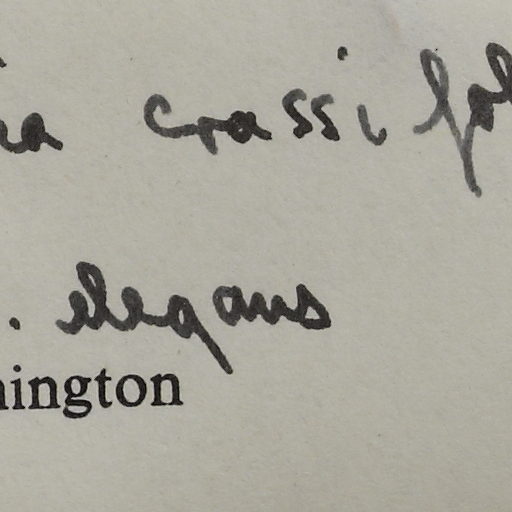 ia crassifol
. elegans
nington